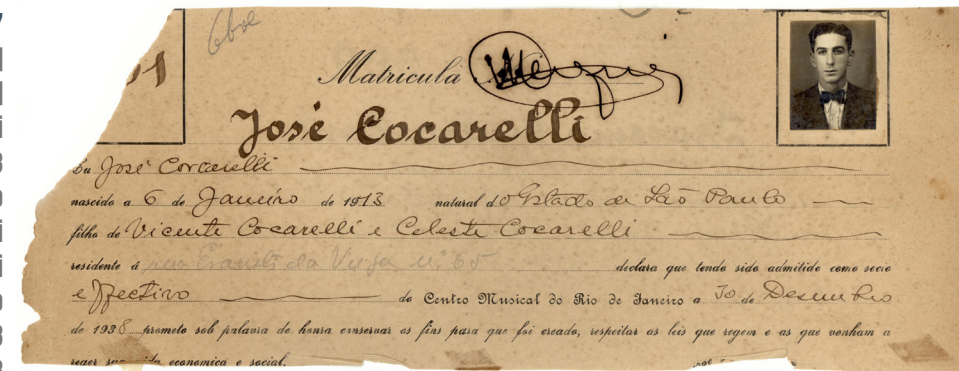 oboe
Matricula
José Cocarelli
Eu José Corcarelli
nascido a 6 de Janeiro de 1913 natural do Estado de São Paulo
filho de Vicente Cocarelli e Celeste Cocarelli
residente á da Veiga, nº 65 declara que tendo sido admittido como socio
effectivo do Centro Musical do Rio de Janeiro a 30 de Desembro
de 1938 prometo sob palavra de honra conservar os fins para que foi creado, respeitar as leis que regem e as que venham a
reger sua vida economica e social.